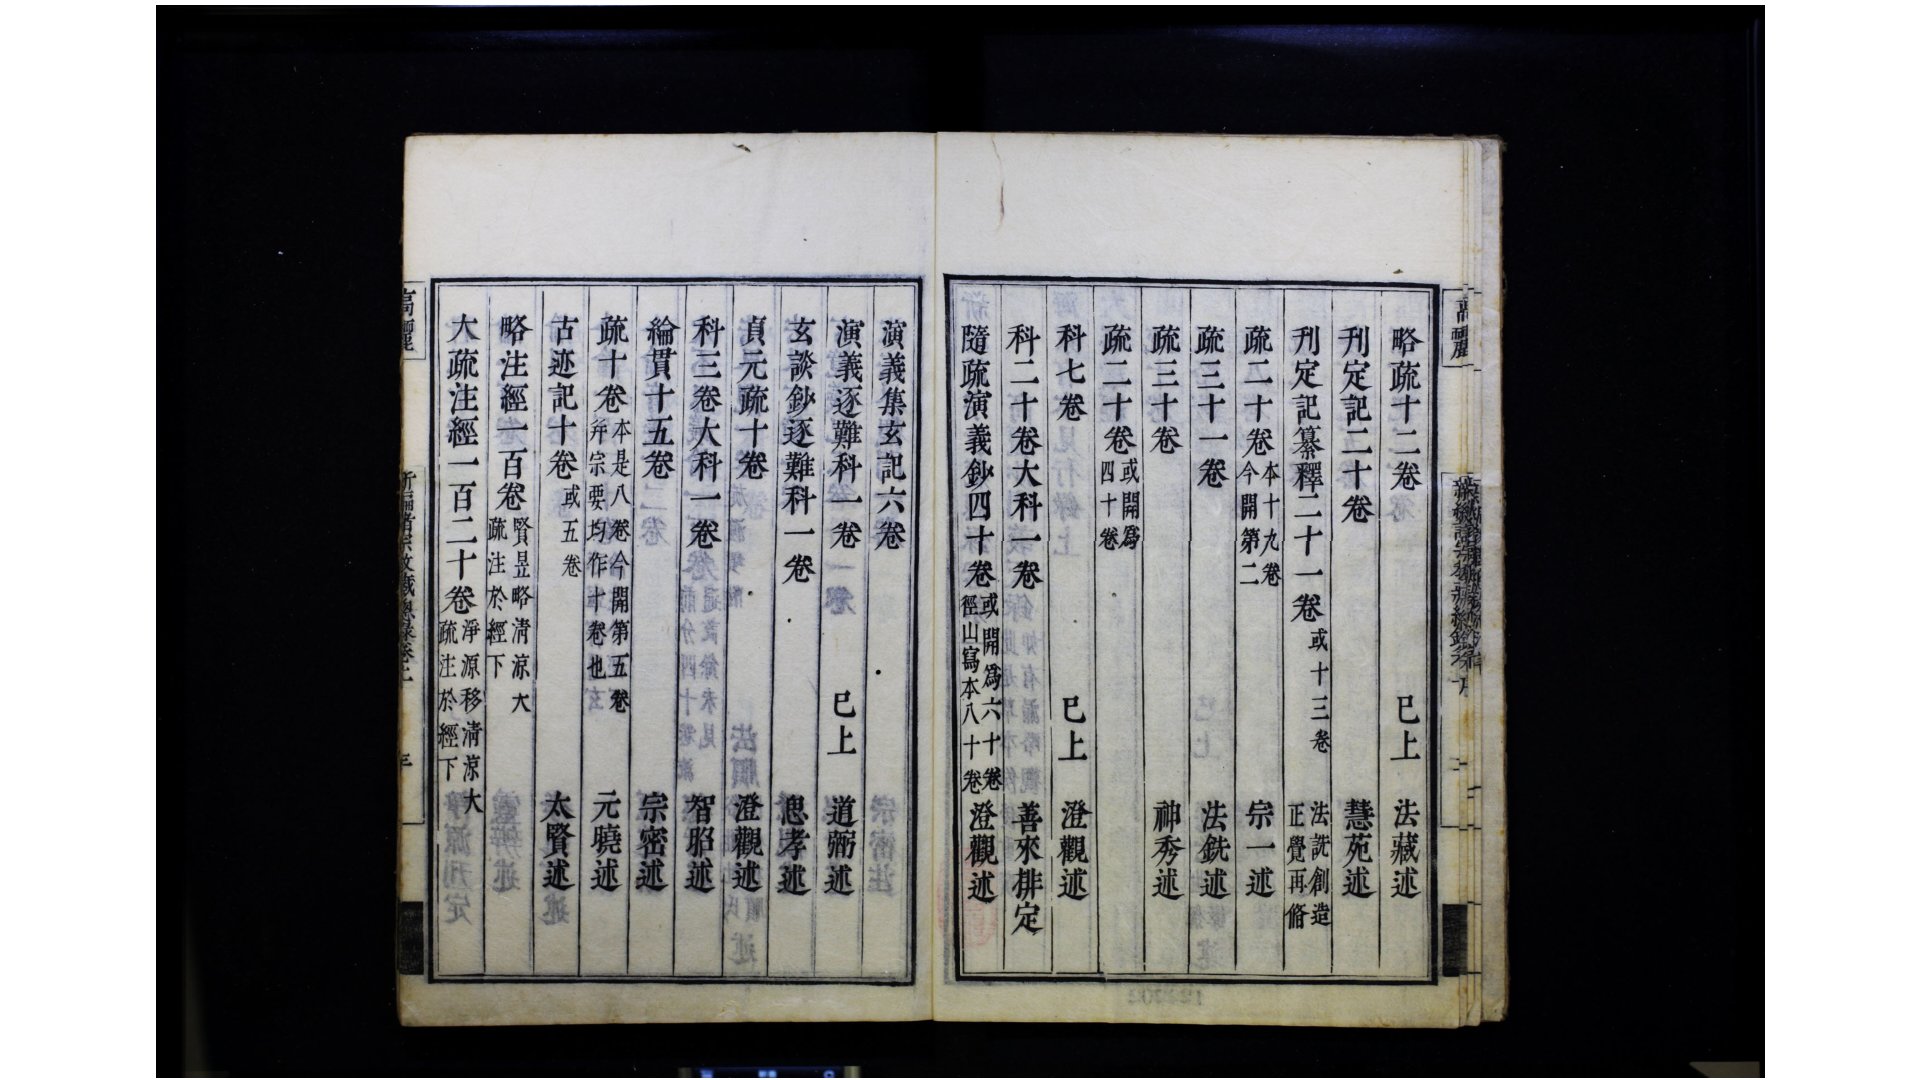 略疏十二卷 已上 法藏述
刊定記二十卷 慧苑述
刊定記纂釋二十一卷 或十三卷 法詵創造 正覺再脩
疏二十卷 本十九卷 今開第二 宗一述
疏三十一卷 法銑述
疏三十卷 神秀述
疏二十卷 或開爲 四十卷
科七卷 已上 澄觀述
科二十卷大科一卷 善來排定
隨疏演義鈔四十卷 或開爲六十卷 徑山寫本八十卷 澄觀述
演義集玄記六卷
演義逐難科一卷 已上 道弼述
玄談鈔逐難科一卷 思孝述
貞元疏十卷 澄觀述
科三卷大科一卷 智昭述
綸貫十五卷 宗密述
疏十卷 本是八卷今開第五卷 并宗要均作十卷也 元曉述
古迹記十卷 或五卷 太賢述
略注經一百卷 賢昱略清涼大 疏注於經下
大疏注經一百二十卷 淨源移清涼大 疏注於經下
高麗